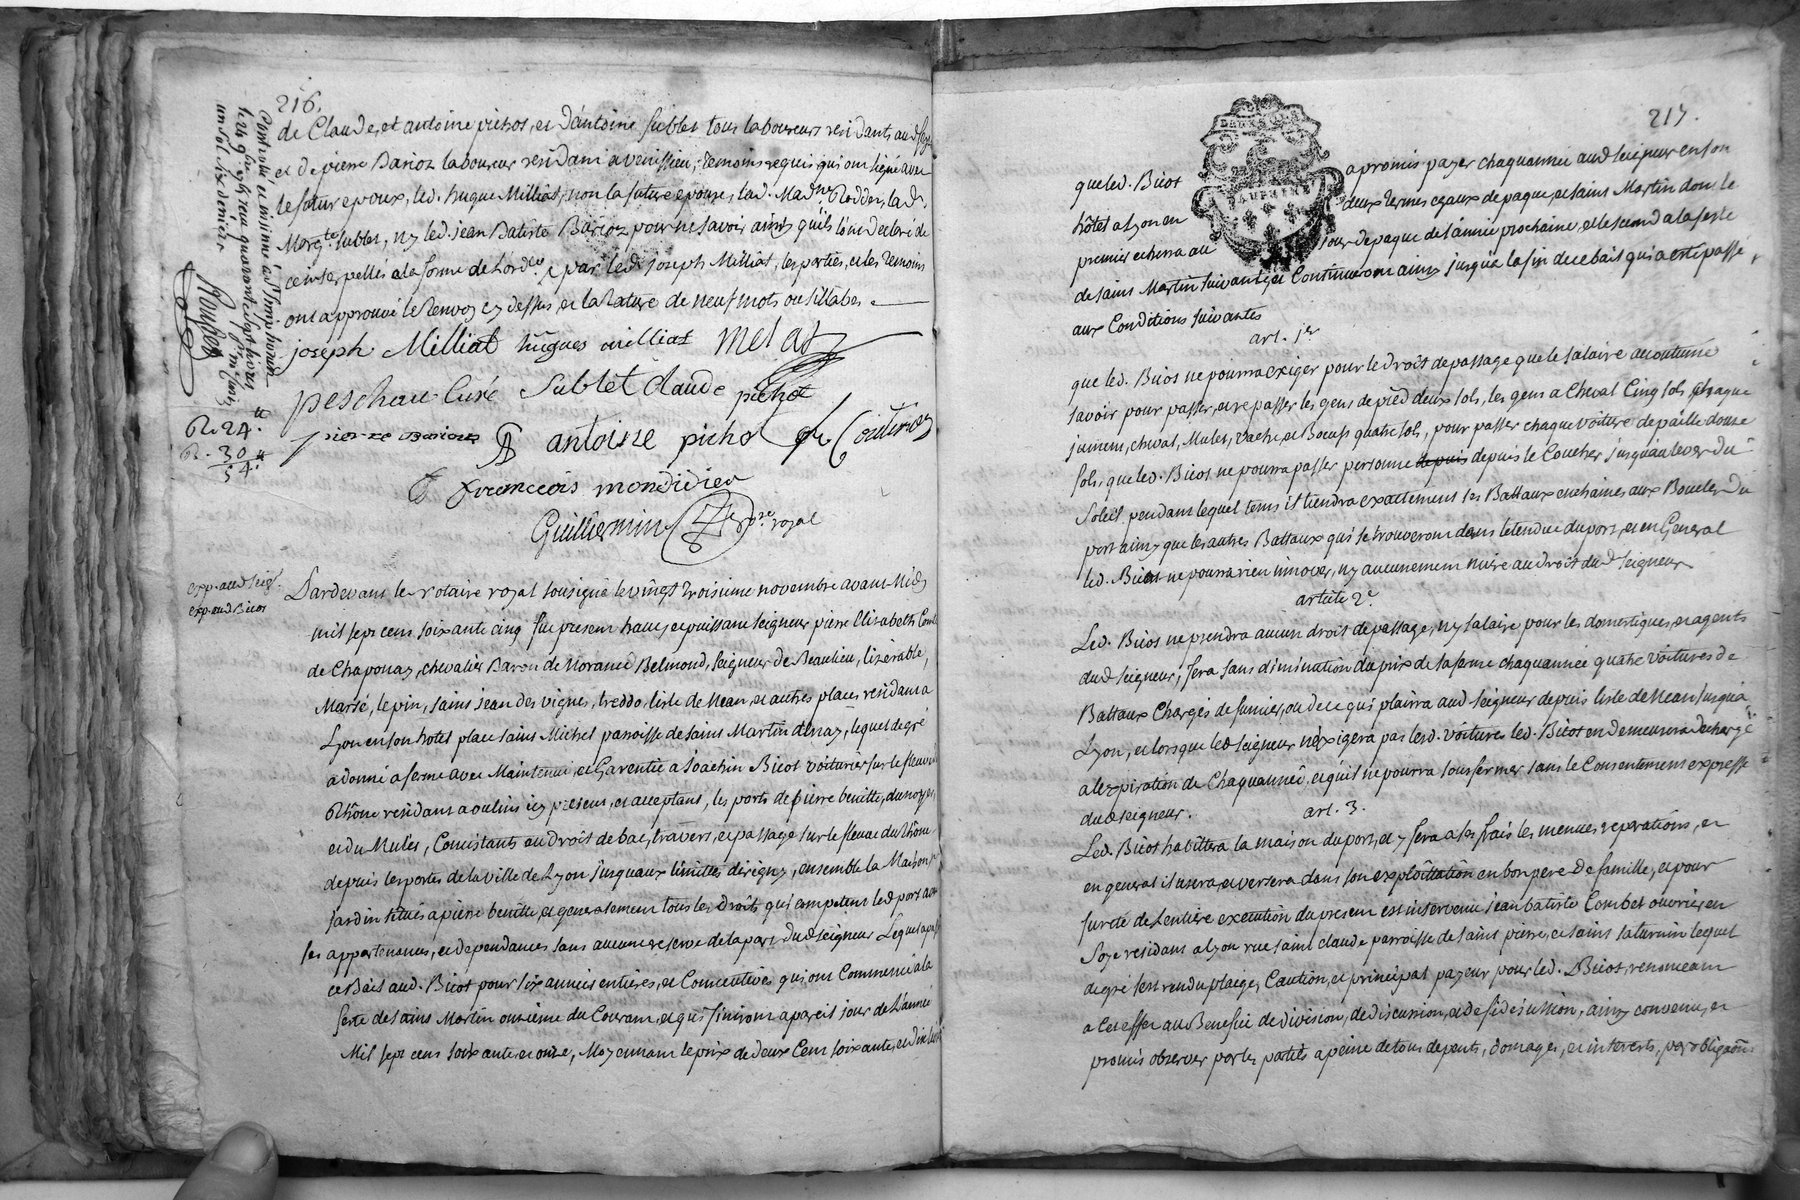 216.
de Claude, et antoine pichot, et d'antoine sublet tous laboureurs residants aud
et de pierre Barioz laboureur residant a venissieu, temoins requis qui ont signé avec
le futur epoux, led. hugue Milliat, non la future epouse, lad.
Marg.te Sublet, ny led. jean Batiste Barioz pour ne savoir ainsy qu'ils l'ont declaré de
ce interpellés a la forme de l'ord.ce par led. joseph Milliat, les parties, et les temoins
ont approuvé le Renvoy cy dessus et la Rature de neuf mots ou sillabes.
joseph Milliat hugues milliat melat
peschau Curé Sublet Claude pichot
pierre barioz antoine pichot
francois mondidier
Guilliermin No.re royal
Controlé et insinué a St simphorien
le 29 9bre 1765 reçu quarante sept livres
un sol six deniers
R. 24.
R. 30
54.
exp. aud. seig.r
exp. aud. Bicot
Pardevant le Notaire royal soussigné le vingt troisieme novembre avant Midy
mil sept cent soixante cinq fut present haut, et puissant seigneur pierre Elisabeth Comte
de Chaponay, chevalier Baron de Morancé Belmond, seigneur de Beaulieu, lizerable,
Marsé, le pin, saint jean des vignes, treddo, l'isle de Mean, et autres places residant a
Lyon en son hotel place saint Michel paroisse de saint Martin d'Enay, lequel de gré
a donné a ferme avec Maintenue, et Garentie a Joachin Bicot voiturier sur le fleuve du
Rhône residant a oulins icy present, et acceptant, les ports de pierre benitte, du noyer,
et du Mulet, Consistants au droit de bac, travers, et passage sur le fleuve du Rhône
depuis les portes de la ville de Lyon jusquaux limittes d'irigny, ensemble la Maison, et
jardin situés a pierre benitte, et generalement tous les droits qui competent led. port avec
ses appartenances, et dependances sans aucune reserve de la part dud. seigneur Lequel a passé
ce Bail aud. Bicot pour six années entieres, et Consecutives qui ont Commencé a la
ferte de saint Martin onzieme du Courant, et qui finiront a pareil jour de L'année
Mil sept cent soixante et onze, Moyennant le prix de deux Cent soixante, et dix livres
217.
que led. Bicot a promis payer chaquannée aud. seigneur en son
hôtel a Lyon en deux termes egaux de paque, et saint Martin dont le
premier echerra au jour de paque de l'année prochaine, et le second a la feste
de saint Martin suivante, et Continueront ainsy jusqua la fin du ce bail qui a eté passé
aux Conditions suivantes
art. 1er
que led. Bicot ne pourra exiger pour le droit de passage que le salaire accoutumé
savoir pour passer, et repasser les gens de piéd deux sols, les gens a Cheval Cinq sols, chaque
jument, cheval, Mulet, vache, et Boeufs quatre sols, pour passer chaque voiture de paille douze
sols, que led. Bicot ne pourra passer personne depuis depuis le Coucher jusquau lever du
Soleil, pendant lequel tems il tiendra exactement ses Battaux enchainés aux Boucles du
port ainsy que les autres Battaux qui se trouveront dans letendue du port, et en General
led. Bicot ne pourra rien innover, ny aucunement nuire au droit dud. seigneur
article 2e.
Led. Bicot ne prendra aucun droit de passage, ny salaire pour les domestiques, et agents
dud. seigneur, fera sans diminution du prix de sa ferme chaquannée quatre voitures de
Battaux Chargés de fumier, ou de ce qui plaira aud. seigneur depuis l'isle de Mean jusqu'a
Lyon, et lorsque led. seigneur n'exigera pas lesd. voitures led. Bicot en demeurera dechargé
a l'expiration de Chaquannée, et quil ne pourra sousfermer sans le Consentement expresse
dud. seigneur. art. 3.
Led. Bicot habittera la maison du port, et y fera a ses frais les menues reparations, et
en general il usera, et versera dans son exploittation en bon pere de famille, et pour
sureté de l'entiere execution du present est intervenu jean batiste Combet ouvrier en
Soye residant a Lyon rue saint claude parroisse de saint pierre, et saint saturnin lequel
de gré s'est rendu plaige, Caution, et principal payeur pour led. Bicot, renonceant
a cet effet au Benefice de division, de discussion, et de fidejussion, ainsy convenu, et
promis observer par les parties a peine de tous depents, domages, et interests, par obligaôns